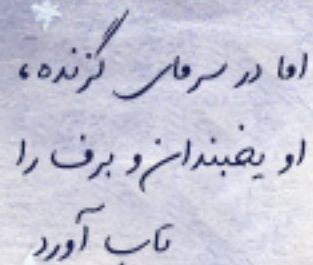 اما در سرمای گزنده،
او یخبندان و برف را
تاب آورد